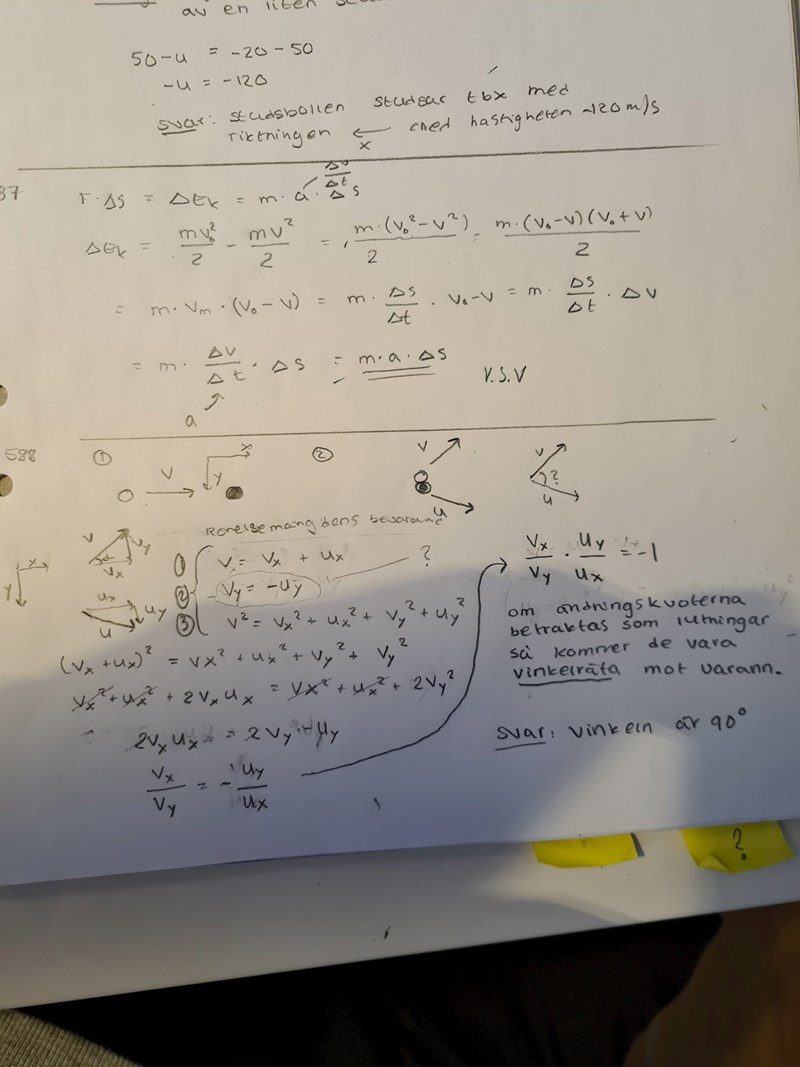 av en liten
50-u = -20-50
-u = -120
svar: studsbollen studsar tbx med
riktningen ← x med hastigheten ~120 m/s
37
F·Δs = ΔEk = m·a·Δs
Δv/Δt
ΔEk = mv₀²/2 - mv²/2 = m·(v₀²-v²)/2 = m·(v₀-v)(v₀+v)/2
= m·vm·(v₀-v) = m·Δs/Δt·v₀-v = m·Δs/Δt·Δv
= m·Δv/Δt·Δs = m·a·Δs V.S.V
a
588 ① v x y ② v u v ? u
Rörelsemängdens bevarande
x y v vy vx ux uy u
① v = vx + ux
② vy = -uy ?
③ v² = vx² + ux² + vy² + uy²
(vx+ux)² = vx² + ux² + vy² + vy²
vx² + ux² + 2vxux = vx² + ux² + 2vy²
2vxux = 2vy·-uy
vx/vy = -uy/ux
vx/vy · uy/ux = -1
om ändringskvoterna
betraktas som lutningar
så kommer de vara
vinkelräta mot varann.
svar: vinkeln är 90°
?